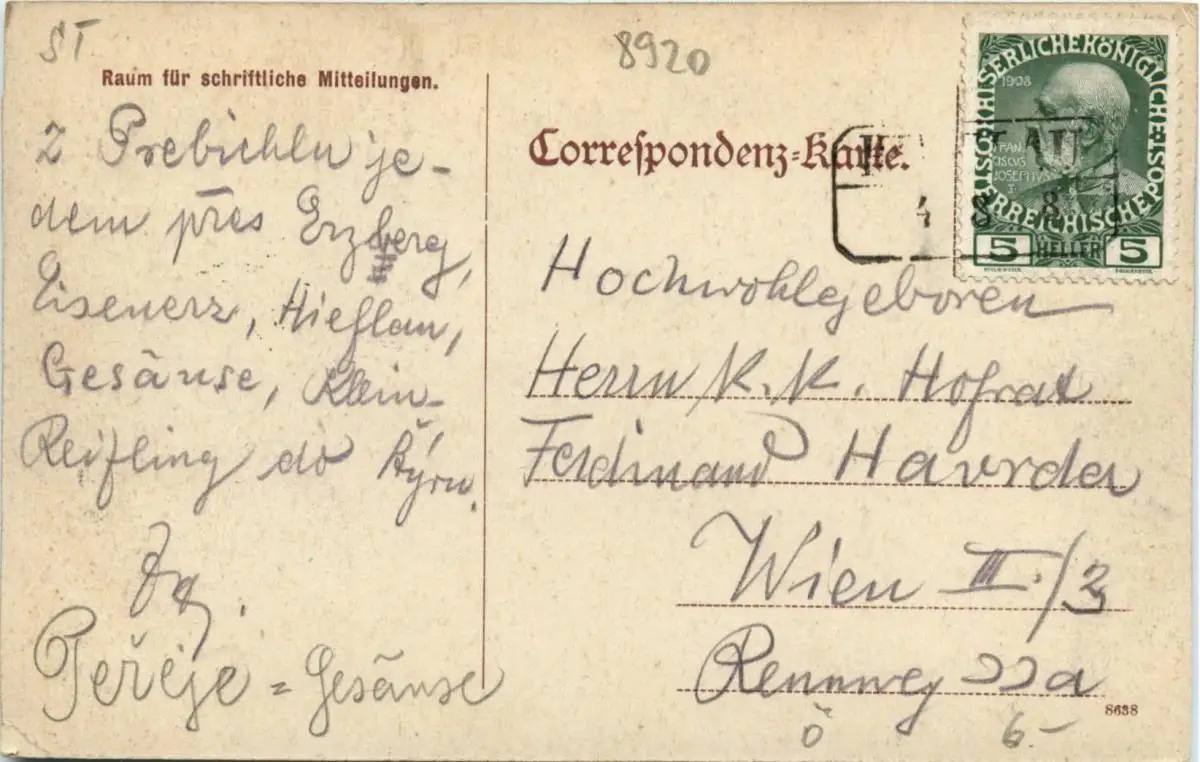 ST
8920
Raum für schriftliche Mitteilungen.
z Prebichlu je-
dem přes Erzberg,
Eisenerz, Hieflau,
Gesäuse, Klein-
Reifling do Štýru.
Peřeje = Gesäuse
Correspondenz-Karte.
KAISERLICHE KÖNIGLICHE ÖSTERREICHISCHE POST
1908
FRAN
CISCUS
JOSEPHUS
I
5 HELLER 5
AU
8
Hochwohlgeboren
Herrn K. K. Hofrat
Ferdinand Havrda
Wien III./3
Rennweg
8638
6-